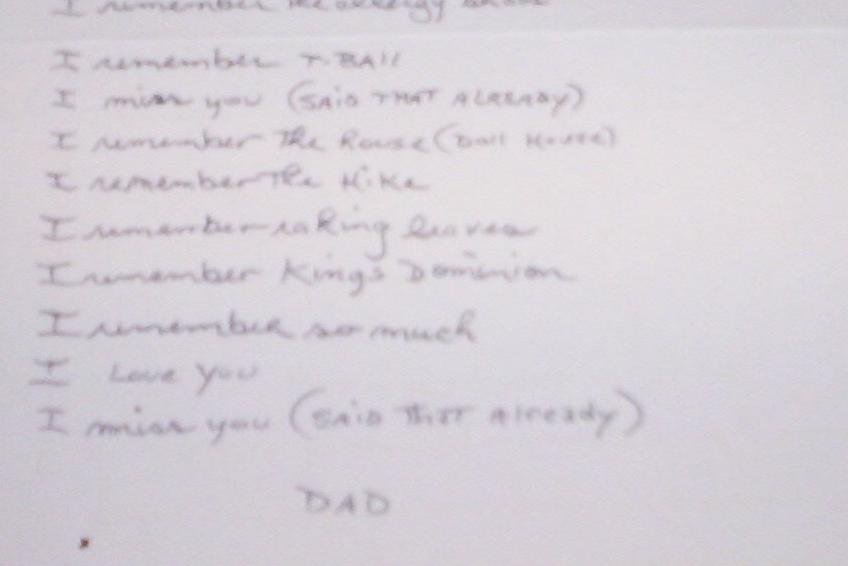 I remember the allergy shots
I remember T-BAll
I miss you (SAiD THAT AlREADy)
I remember The House (Doll House)
I remember The Hike
I remember raking leaves
I remember Kings Dominion
I remember so much
I Love you
I miss you (SAiD THAT Already)
DAD